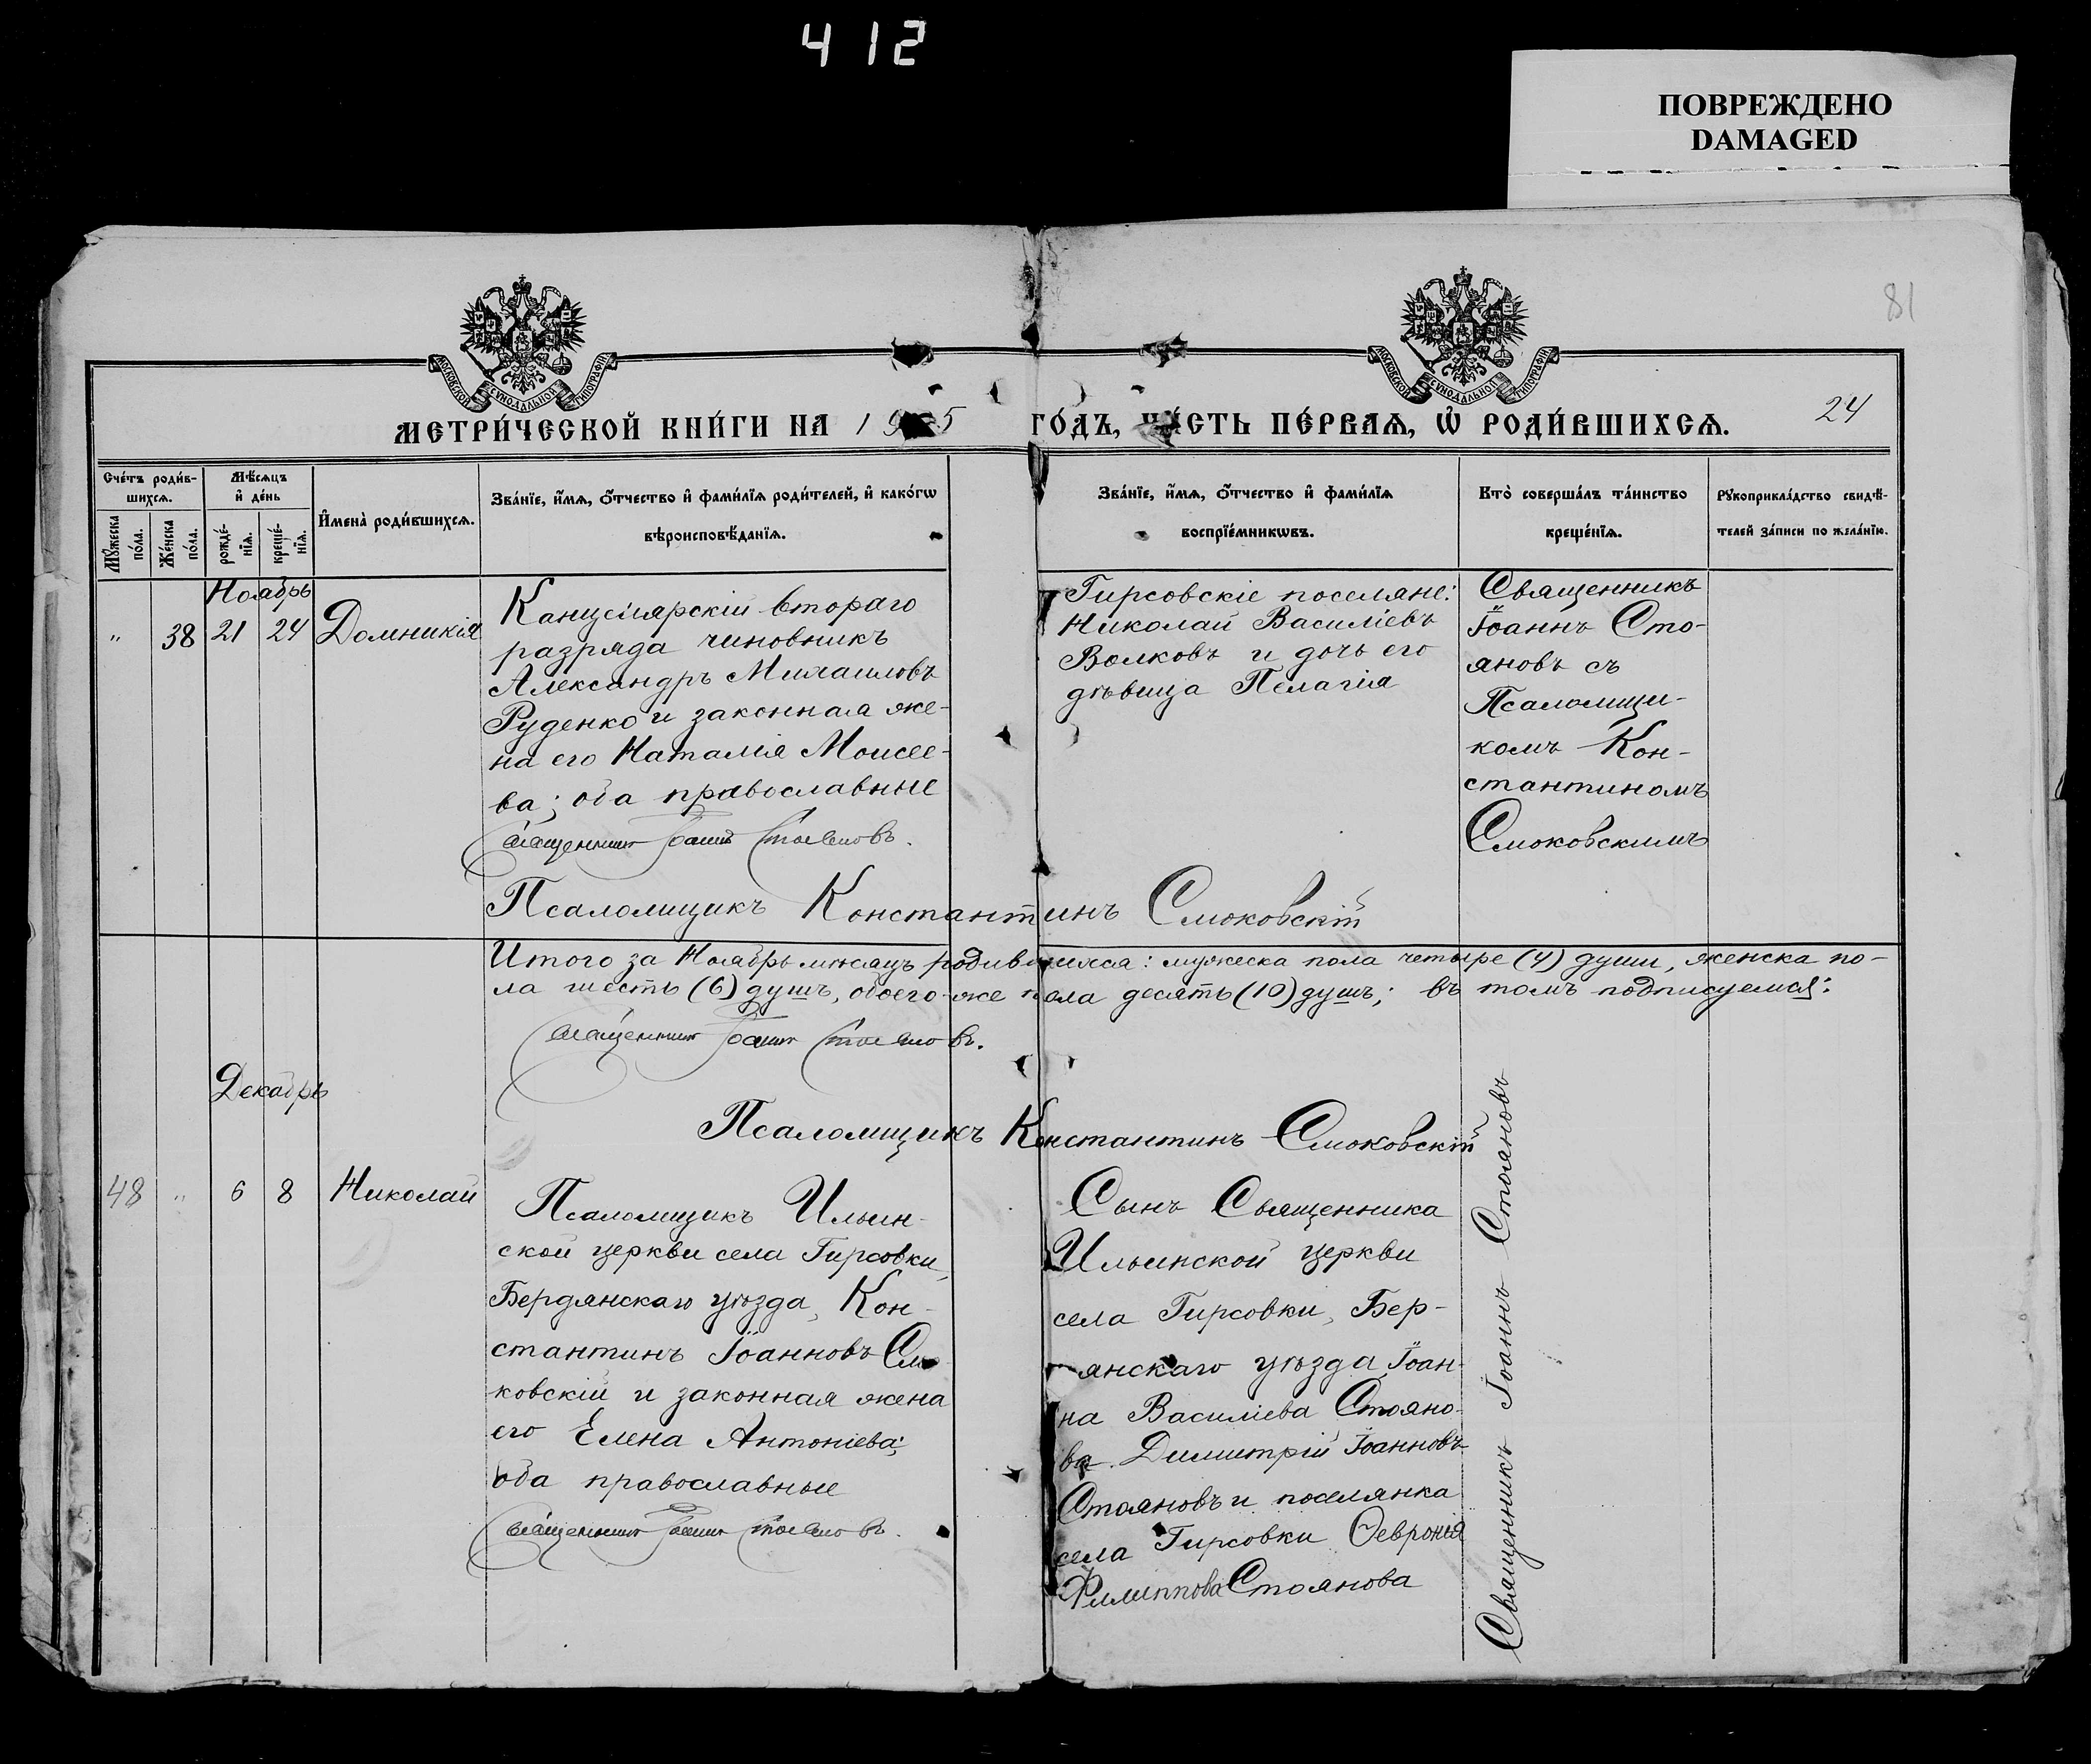 412
ПОВРЕЖДЕНО
DAMAGED
81
МОСКОВСКОЙ СѴНОДАЛЬНОЙ ТИПОГРАФІИ
МОСКОВСКОЙ СѴНОДАЛЬНОЙ ТИПОГРАФІИ
МЕТРИ́ЧЕСКОЙ КНИ́ГИ НА 19 5 ГО́ДЪ, ЧА́СТЬ ПЕ́РВАѦ, Ѡ҆ РОДИ́ВШИХСѦ.
24
Сче́тъ роди́в-
шихсѧ.
Мѣ́сѧцъ
и҆ де́нь
Мꙋ́жеска
по́ла.
Же́нска
по́ла.
рожде́-
нїѧ.
креще́-
нїѧ.
И҆мена̀ роди́вшихсѧ.
Зва́нїе, и҆́мѧ, ѻ҆́тчество и҆ фами́лїѧ роди́телей, и҆ како́гѡ
вѣроисповѣ́данїѧ.
Зва́нїе, и҆́мѧ, ѻ҆́тчество и҆ фами́лїѧ
воспрїе́мникѡвъ.
Кто̀ соверша́лъ та́инство
креще́нїѧ.
Рꙋкоприкла́дство свидѣ́-
телей за́писи по жела́нїю.
Ноябрь
" 38 21 24 Домникія
Канцелярскій втораго
разряда чиновникъ
Александръ Михаиловъ
Руденко и законная же-
на его Наталія Моисее-
ва; оба православные
Священникъ Іоаннъ Стояновъ.
Гирсовскіе поселяне:
Николай Василіевъ
Волковъ и дочь его
дѣвица Пелагія
Священникъ
Іоаннъ Сто-
яновъ съ
Псаломщи-
комъ Кон-
стантиномъ
Смоковскимъ
Псаломщикъ Константинъ Смоковскій
Итого за Ноябрь мѣсяцъ родившихся: мужеска пола четыре (4) души, женска по-
ла шесть (6) душъ, обоего-же пола десять (10) душъ; въ томъ подписуемся:
Священникъ Іоаннъ Стояновъ.
Декабрь
Псаломщикъ Константинъ Смоковскій
48 " 6 8 Николай
Псаломщикъ Ильин-
ской церкви села Гирсовки,
Бердянскаго уѣзда, Кон-
стантинъ Іоанновъ См
ковскій и законная жена
его Елена Антоніева;
оба православные
Священникъ Іоаннъ Стояновъ.
Сынъ Священника
Ильинской церкви
села Гирсовки, Бер-
янскаго уѣзда Іоан-
на Василіева Стояно-
ва Димитрій Іоанновъ
Стояновъ и поселянка
села Гирсовки Ѳевронія
Филиппова Стоянова
Священникъ Іоаннъ Стояновъ